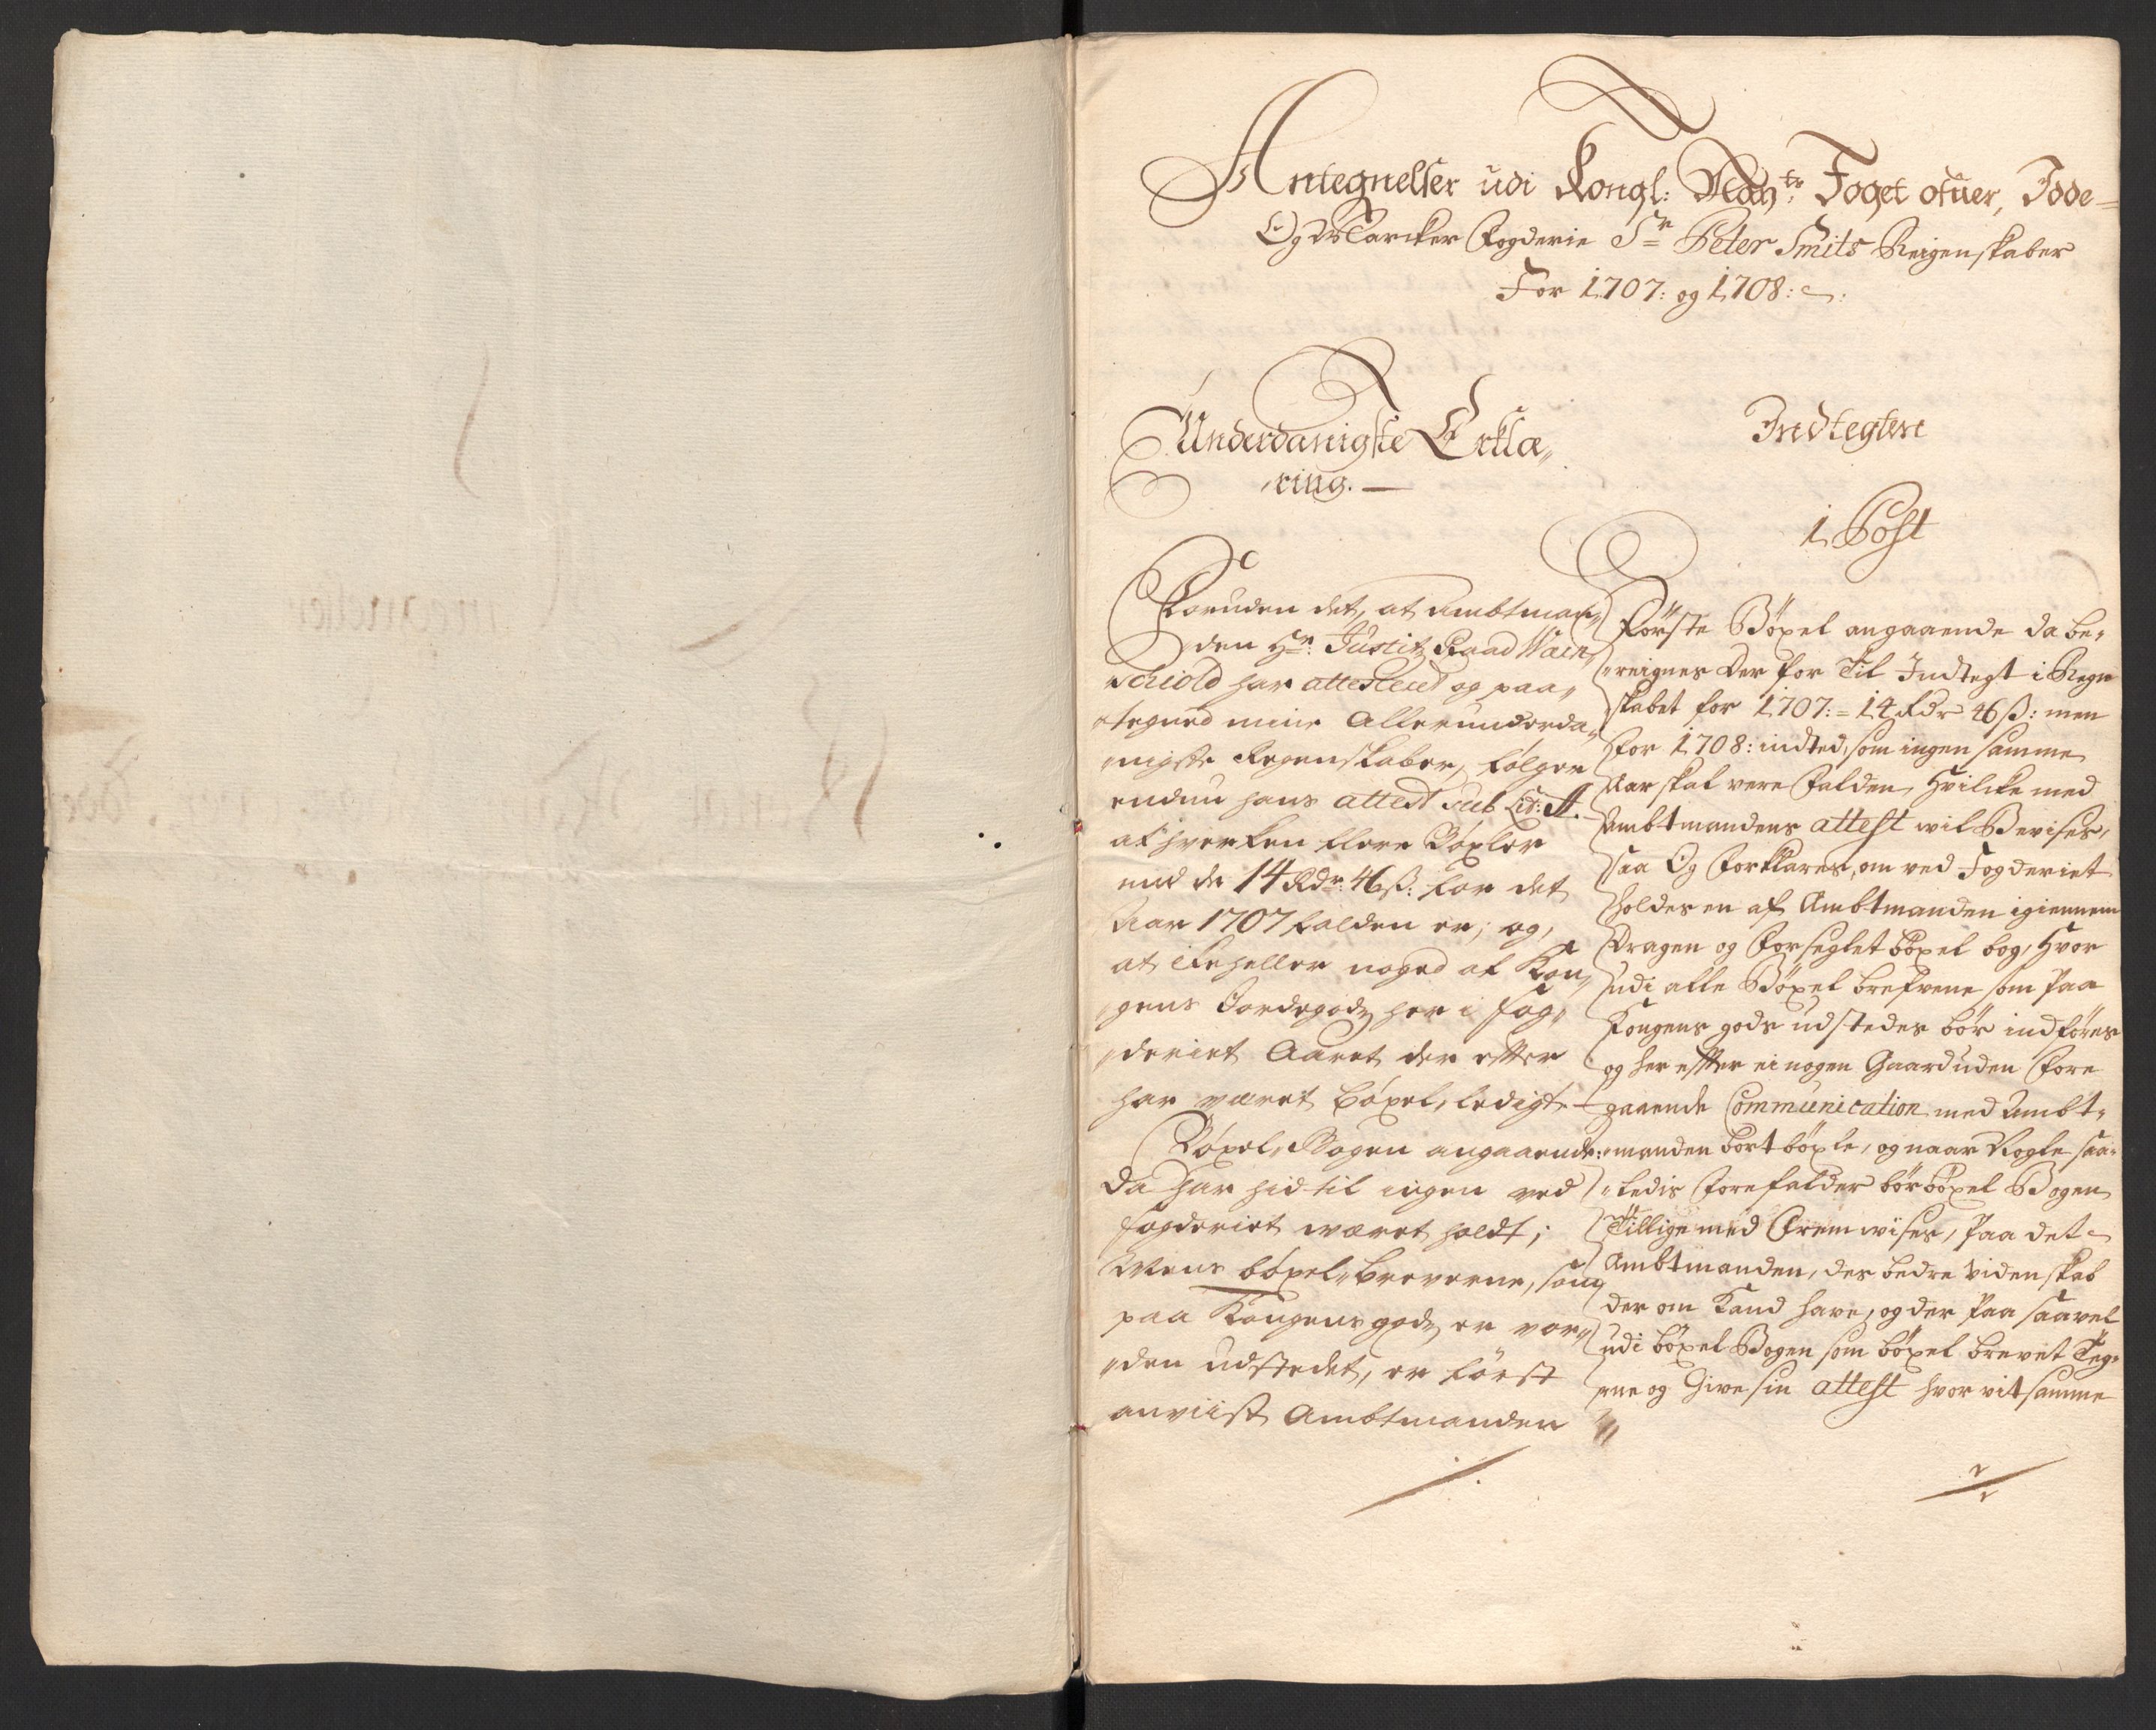 Antegnelser udi Kongl: May:ts Foget ofuer, Idde=
Og Marcker Fogderie Sr Peter Smits Reigenskaber
For 1707: og 1708:
Underdanigste Erklæ„
„ring.
Foruden det, at Ambtman„
den Hr: Justitz Raad Wern„
schiold har attesteret og paa„
„tegned mine Allerunderda„
„nigste Regenskaber, følger
endnu hans attest sub Lit: A.
at hverken flere Böxler
end de 14 Rdr: 46 ß: for det
Aar 1707 falden er; og,
at ikke heller noged af Kon„
„gens Jordegodz her i fog„
„deriet Aaret der effter
har været böxel, ledigt
Böxel, Bogen angaaende:
da har hid til ingen ved
fogderiet været holdt;
Mens böxel„brevene, som
paa Kongens godz er vor„
„den udstedet, er först
anviist Ambtmanden
Indtegten
1 Post
Förste Böxel angaaende da be„
„reignes der for til Indtegt i Regn
skabet for 1707: = 14 Rdr 46 ß: men
for 1708: indted, som ingen samme
Aar skal vere falden, Hvilcke med
Ambtmandens attest wil Bevises,
saa Og forklares, om ved Fogderiet
holdes en af Ambtmanden igiennem
Dragen og forseglet böxel bog, Hvor
udi alle Böxel brefvene som Paa
Kongens gods udstedes bör indföres
og her effter ei nogen Gaard uden fore
gaaende Communication med Ambt„
„manden bort böxle, og naar Nogle saa„
„ledis forefalder bör böxel Bogen
Tillige med fremwises, Paa det
Ambtmanden, des bedre Videnskab
der om Kand have, og der Paa saavel
udi böxel Bogen som böxel brevet Teg„
„ne og Give sin attest hvor vit samme